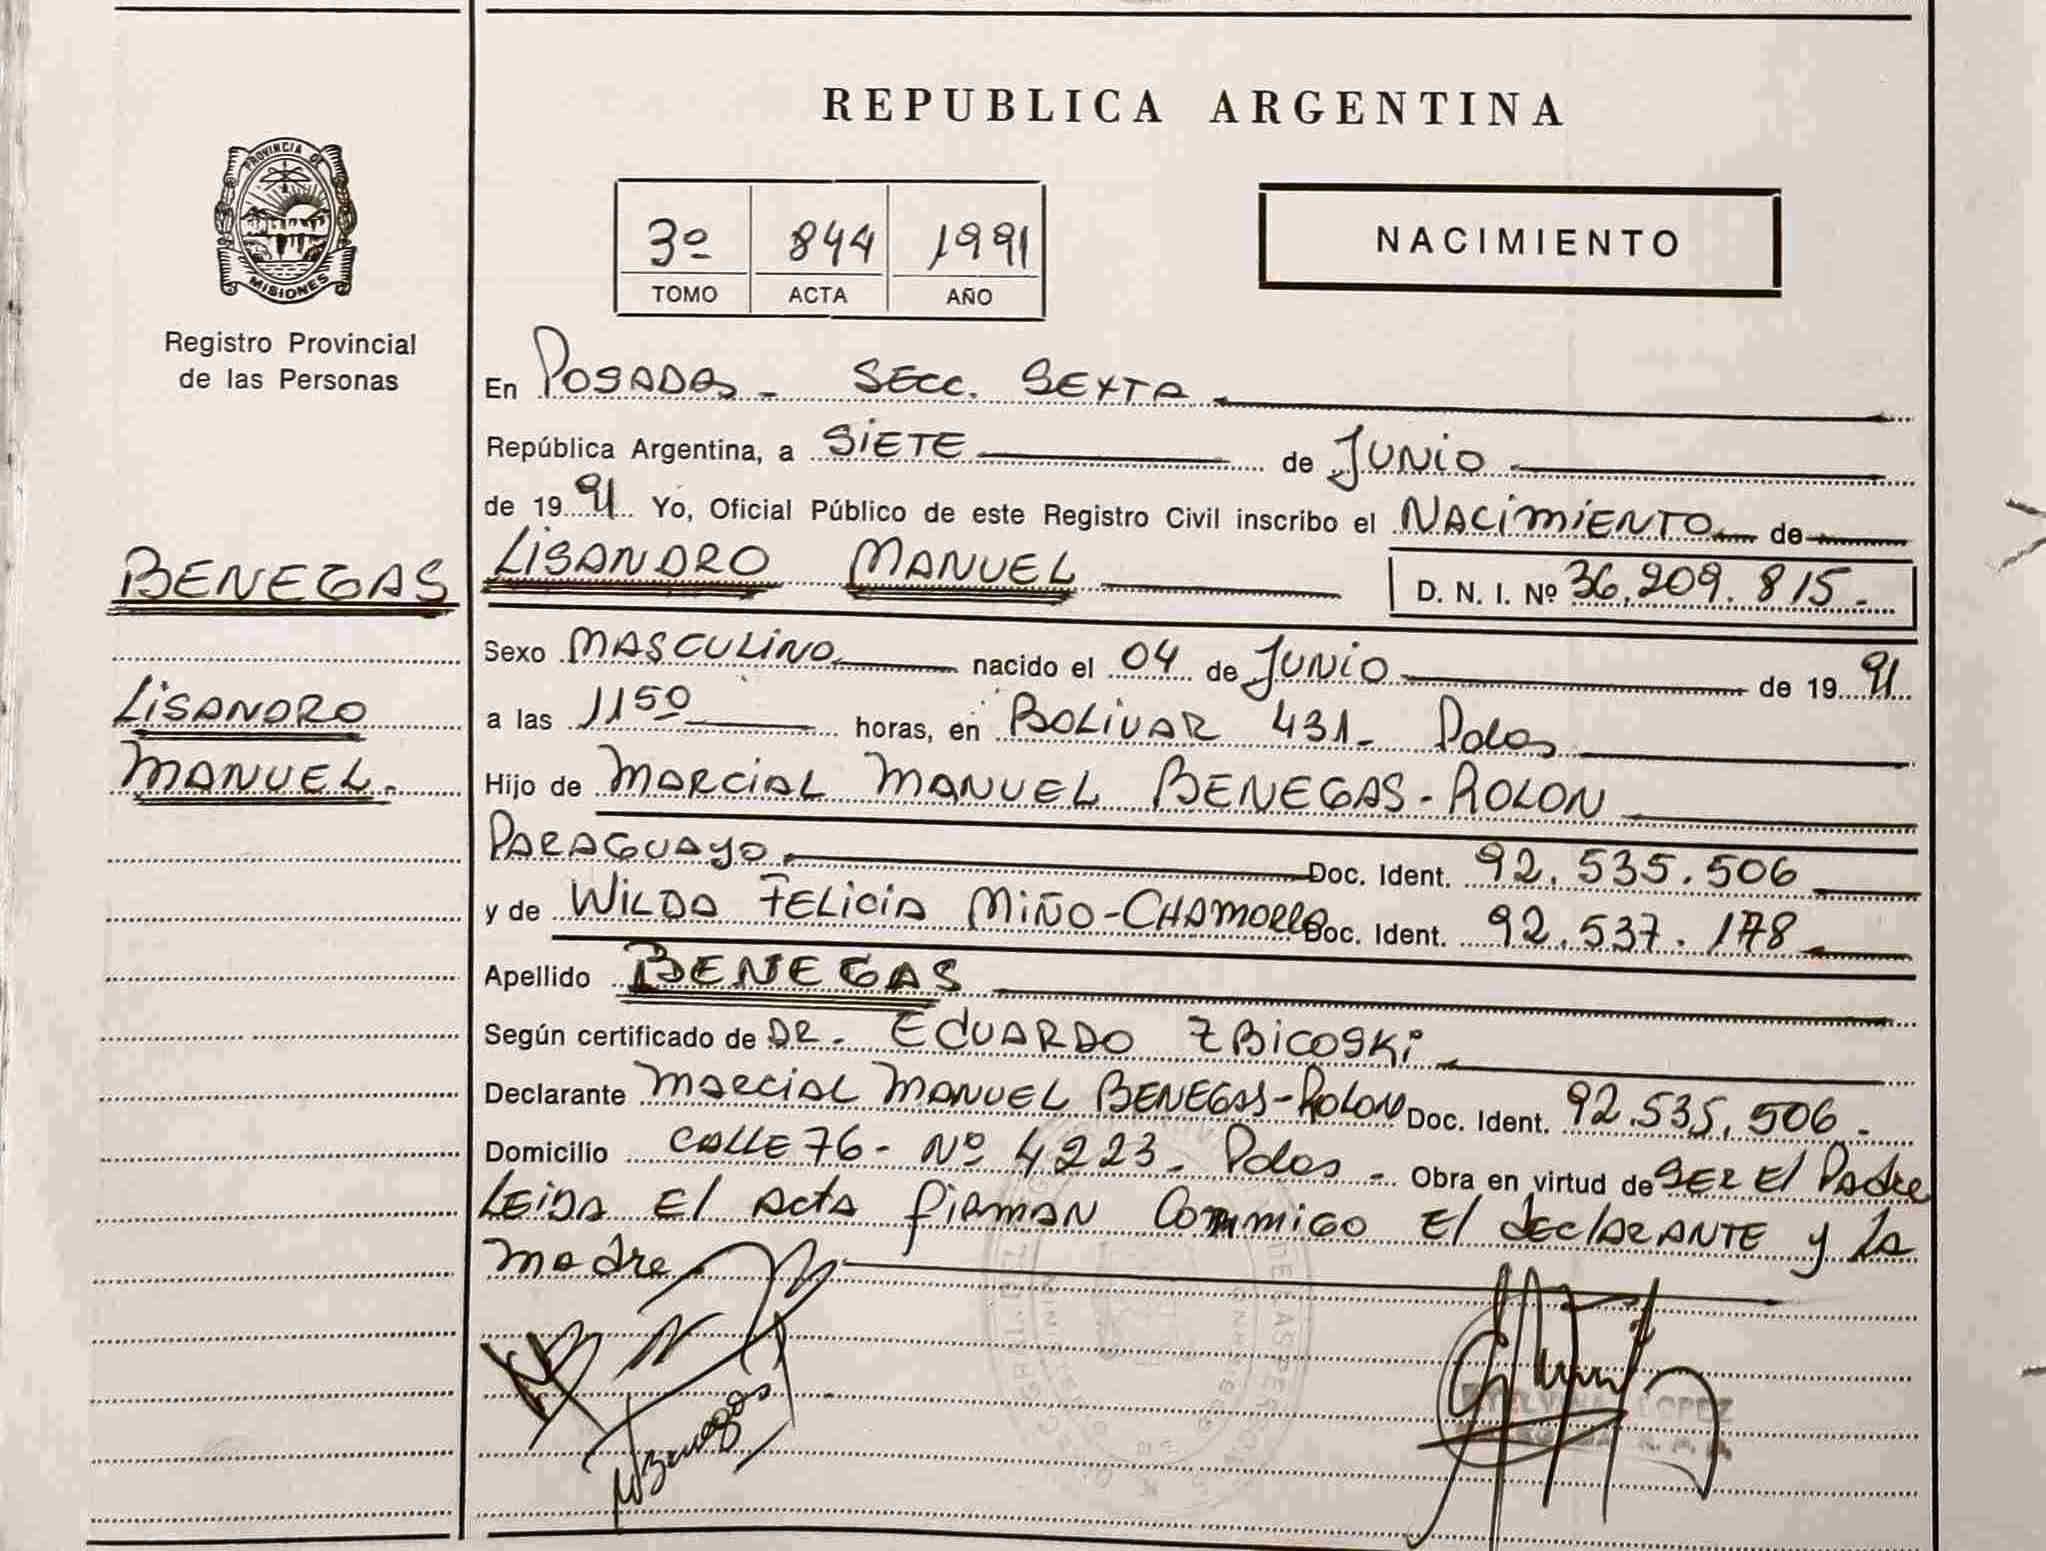 REPUBLICA ARGENTINA
PROVINCIA DE
MISIONES
Registro Provincial
de las Personas
3º 844 1991
TOMO ACTA AÑO
NACIMIENTO
En POSADAS - SECC. SEXTA
República Argentina, a SIETE de JUNIO
de 1991 Yo, Oficial Público de este Registro Civil inscribo el NACIMIENTO de
BENEGAS
LISANDRO MANUEL D. N. I. Nº 36.209.815.-
Sexo MASCULINO nacido el 04 de JUNIO de 1991
LISANDRO
MANUEL.-
a las 1150 horas, en BOLIVAR 431- Pdas
Hijo de MARCIAL MANUEL BENEGAS-ROLON
PARAGUAYO Doc. Ident. 92.535.506
y de WILDA FELICIA MIÑO-CHAMORRO Doc. Ident. 92.537.178
Apellido BENEGAS
Según certificado de DR. EDUARDO ZBICOSKI
Declarante MARCIAL MANUEL BENEGAS-ROLON Doc. Ident. 92.535.506-
Domicilio CALLE 76- Nº 4223- Pdas - Obra en virtud de SER El Padre
LEIDA El Acta firman Conmigo El declarante y la
madre
M Benegas
LOPEZ